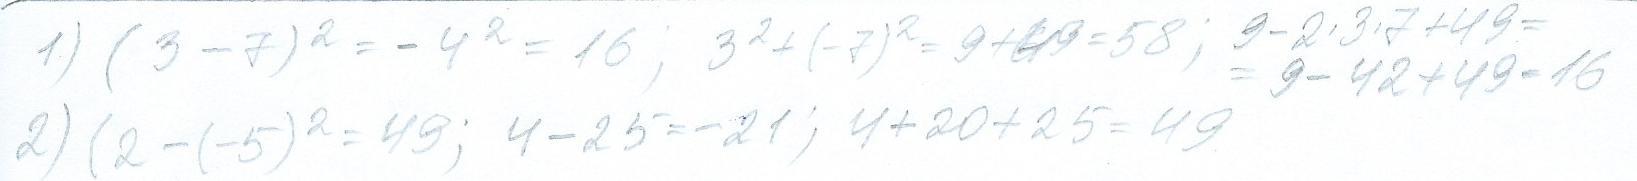 1) (3 - 7)² = - 4² = 16; 3² + (-7)² = 9 + 49 = 58; 9 - 2·3·7 + 49 =
= 9 - 42 + 49 = 16
2) (2 - (-5)² = 49; 4 - 25 = -21; 4 + 20 + 25 = 49